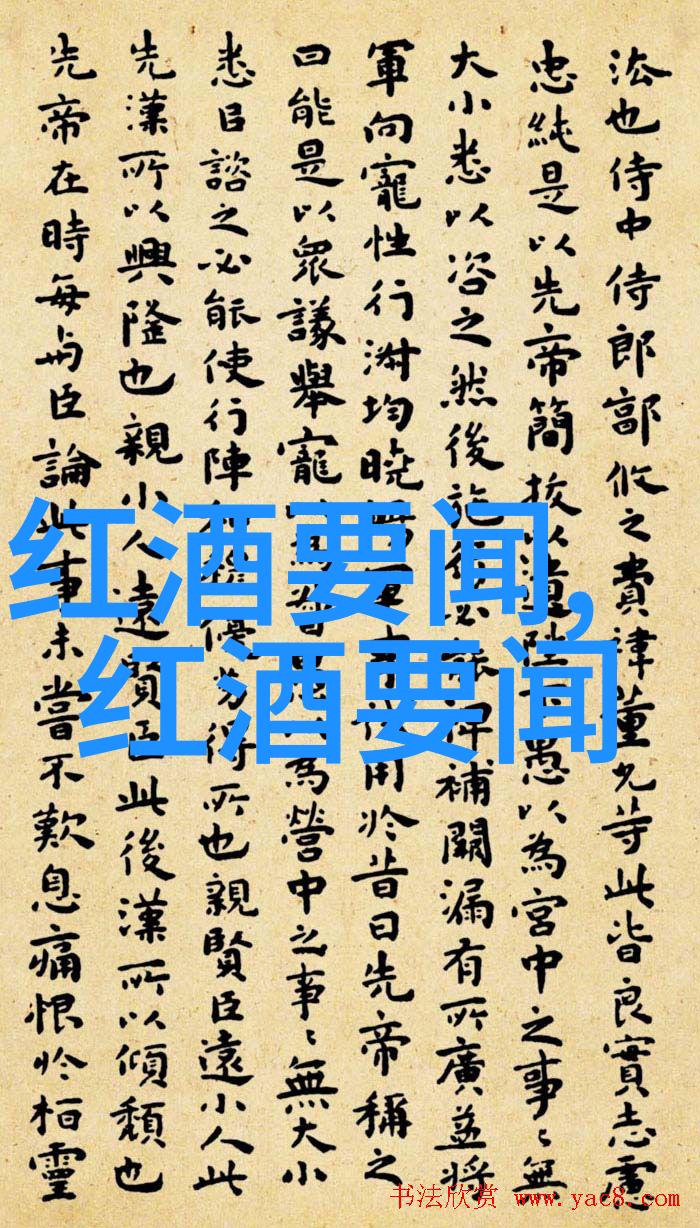 法也侍中侍郎郭攸之費禕董允等此皆良實志慮
忠純是以先帝簡拔以遺陛愚以為宮中之事〻無
大小悉以咨之然後施必能裨補闕漏有所廣益將
軍向寵性行淑均曉暢軍事用於昔日先帝稱之
曰能是以眾議舉寵為督以為營中之事〻無大小
悉㠯諮之必能使行陣和穆優劣得所也親賢臣遠小人此
先漢所以興隆也親小人遠賢臣此後漢所以傾頹也
先帝在時每与臣論此事未嘗不歎息痛恨於桓靈
红酒要闻,
红酒要闻
书法欣赏 www.yac8.com